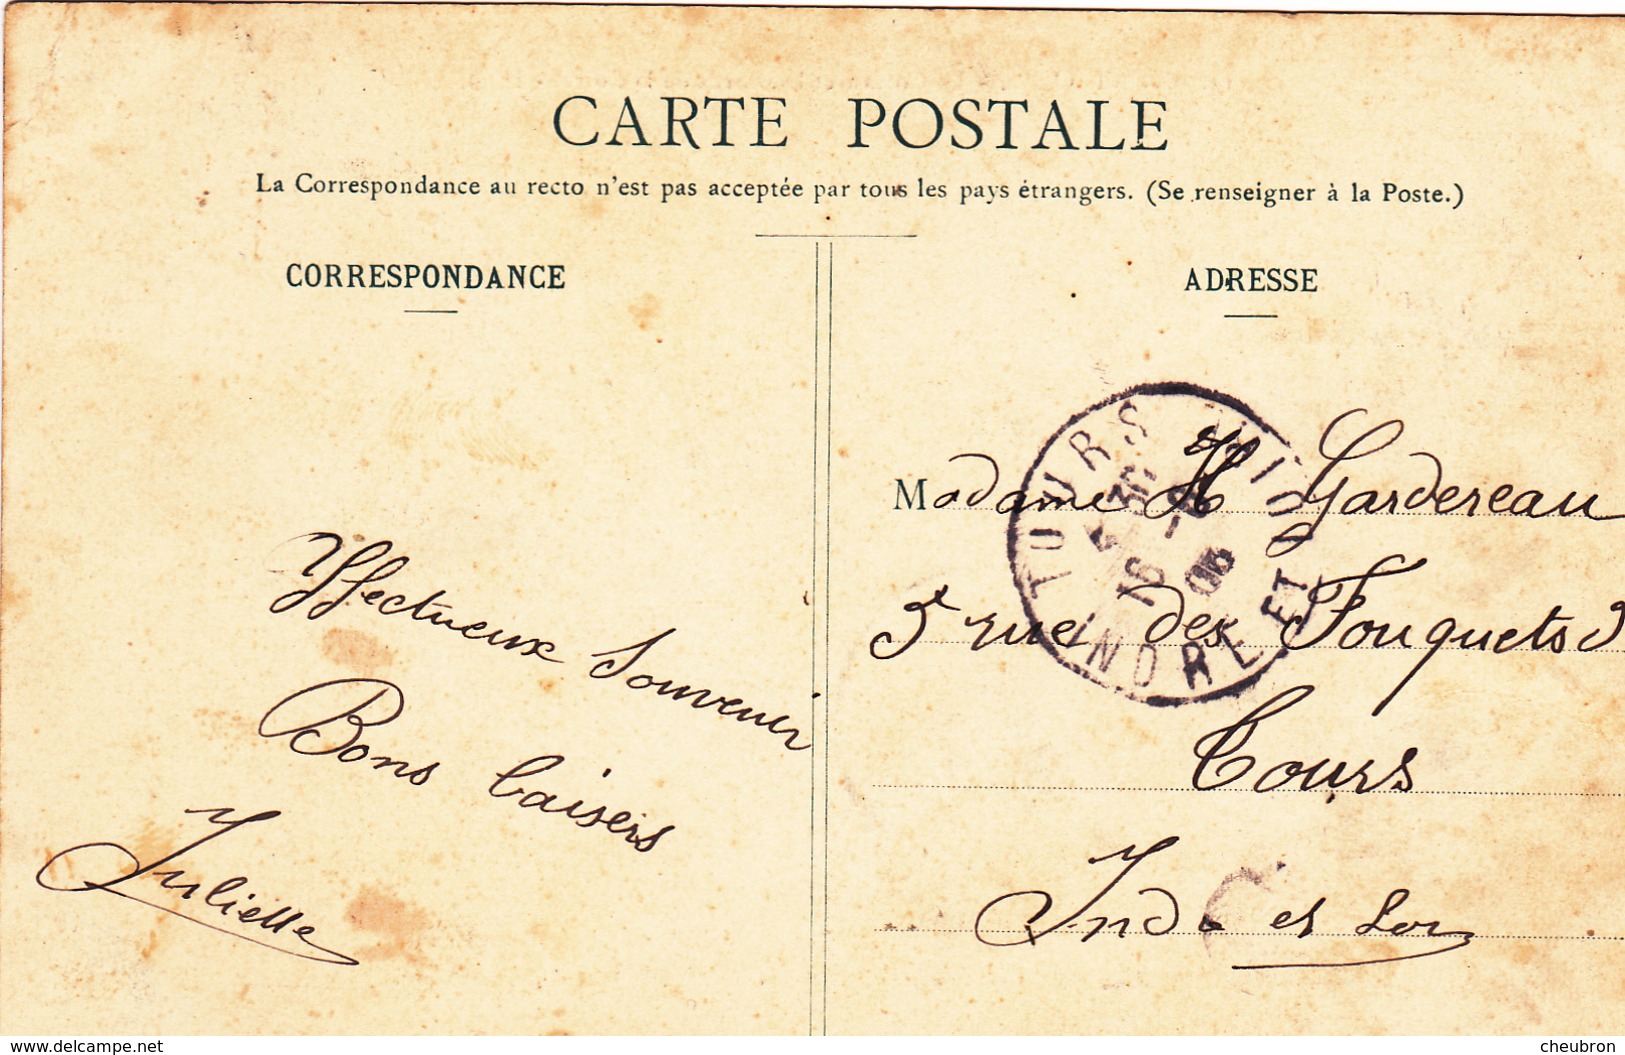 CARTE POSTALE
La Correspondance au recto n'est pas acceptée par tous les pays étrangers. (Se renseigner à la Poste.)
CORRESPONDANCE
Affectueux Souvenir
Bons baisers
Juliette
ADRESSE
Madame H Gardereau
5 rue des Fouquets
Tours
Ind et Loi
TOURS
16
06
INDRE ET
www.delcampe.net
cheubron